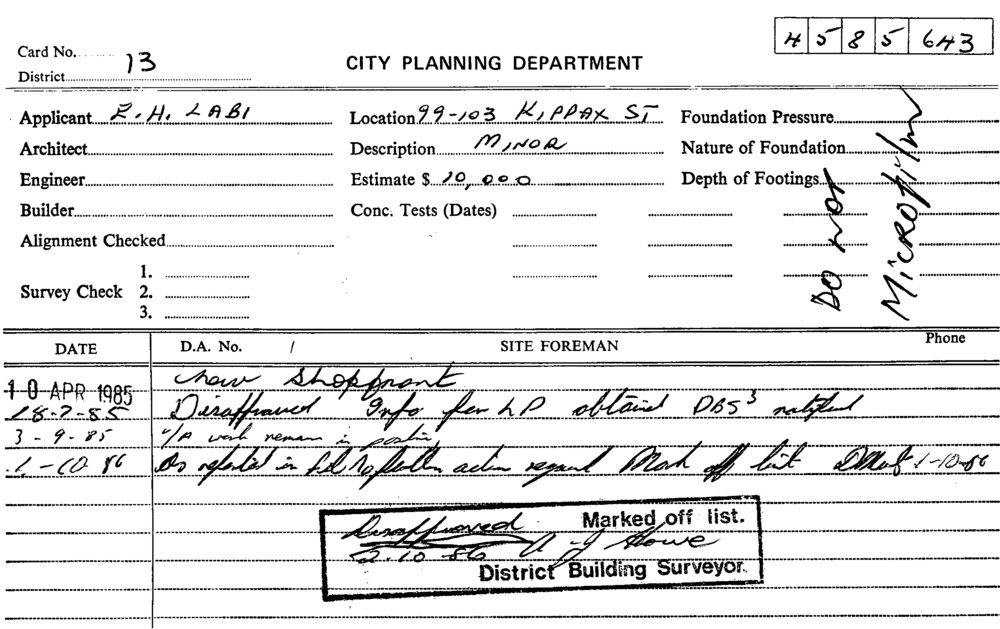 4 5 8 5 643
Card No.
District 13
CITY PLANNING DEPARTMENT
Applicant E. H. LABI
Location 99-103 KIPPAX ST
Foundation Pressure
Architect
Description MINOR
Nature of Foundation
Engineer
Estimate $ 10,000
Depth of Footings
Builder
Conc. Tests (Dates)
Alignment Checked
DO NOT
Microfilm
Survey Check
1.
2.
3.
DATE D.A. No. / SITE FOREMAN Phone
10 APR 1985 new Shopfront
18-7-85 Disapproved Info per LP obtained DBS3 notified
3-9-85 work remain in
1-10-86 As reported in action Mark off list 1-10-86
Disapproved Marked off list.
2.10.86 A J Howe
District Building Surveyor.